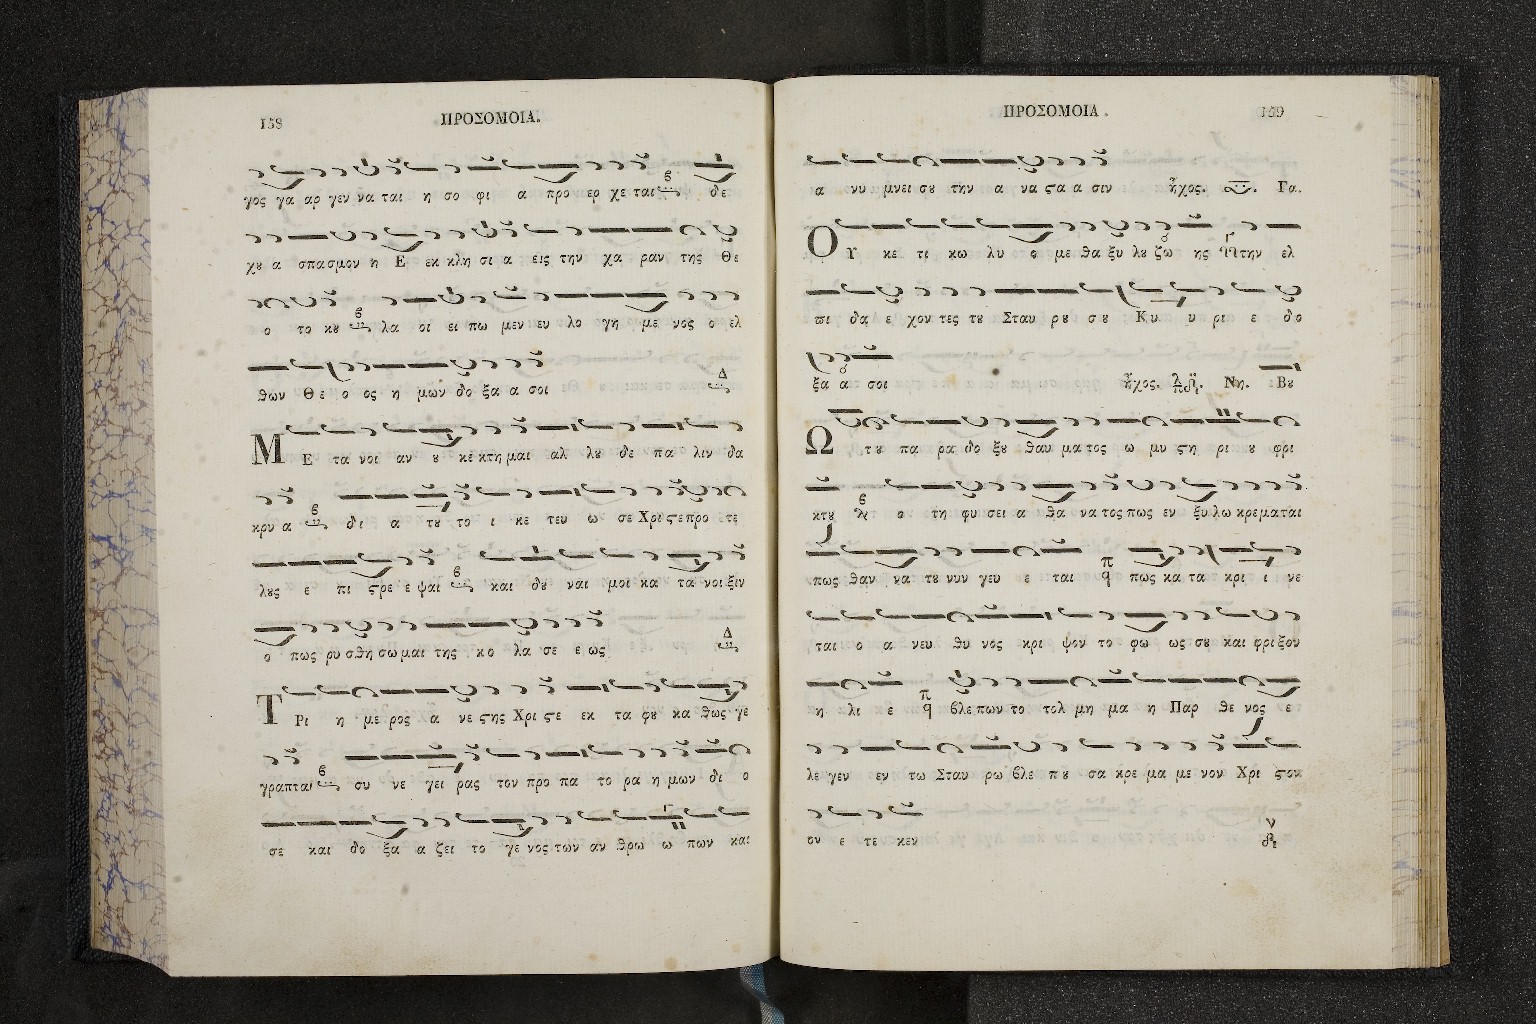 158 ΠΡΟΣΟΜΟΙΑ.
γος γα αρ γεν να ται η σο φι α προ ερ χε ται δε
χȣ α σπασμον η Ε εκ κλη σι α εις την χα ραν της Θε
ο το κȣ λα οι ει πω μεν ευ λο γη με νος ο ελ
θων Θε ο ος η μων δο ξα α σοι
ΜΕ τα νοι αν ȣ κε κτη μαι αλ λȣ δε πα λιν δα
κρυ α δι α τȣ το ι κε τευ ω σε Χρι ϛε προ τε
λȣς ε πι ϛρε ε ψαι και δȣ ναι μοι κα τα νοι ξιν
ο πως ρυ σθη σω μαι της κο λα σε ε ως
ΤΡι η με ρος α νε ϛης Χρι ϛε εκ τα φȣ κα θως γε
γραπται συ νε γει ρας τον προ πα το ρα η μων δι ο
σε και δο ξα α ζει το γε νος των αν θρω ω πων και
ΠΡΟΣΟΜΟΙΑ. 159
α νυ μνει σȣ την α να ϛα α σιν ἦχος. Γα.
ΟΥ κε τι κω λυ ο με θα ξυ λȣ ζω ης την ελ
πι δα ε χον τες τȣ Σταυ ρȣ σȣ Κυ υ ρι ε δο
ξα α σοι ἦχος. Νη. Βȣ
Ω τȣ πα ρα δο ξȣ θαυ μα τος ω μυ ϛη ρι ȣ φρι
κτȣ ο τη φυ σει α θα να τος πως εν ξυ λω κρεμαται
πως θαν να τȣ νυν γευ ε ται πως κα τα κρι ι νε
ται ο α νευ θυ νος κρι ψον το φω ως σȣ και φριξον
η λι ε βλε πων το τολ μη μα η Παρ θε νος ε
λε γεν εν τω Σταυ ρω βλε πȣ σα κρε μα με νον Χρι ϛον
ον ε τε κεν